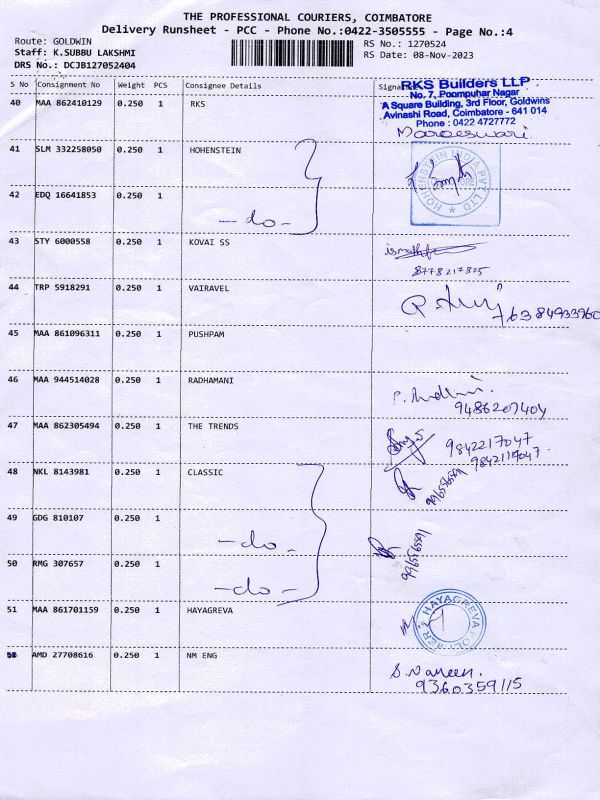 THE PROFESSIONAL COURIERS, COIMBATORE
Delivery Runsheet - PCC - Phone No.:0422-3505555 - Page No.:4
Route: GOLDWIN
Staff: K.SUBBU LAKSHMI
DRS No.: DCJB127052404
RS No.: 1270524
RS Date: 08-Nov-2023
S No Consignment No Weight PCS Consignee Details
RKS Builders LLP
No. 7, Poompuhar Nagar
A Square Building, 3rd Floor, Goldwins
Avinashi Road, Coimbatore - 641 014
Phone : 0422 4727772
40 MAA 862410129 0.250 1 RKS
41 SLM 332258050 0.250 1 HOHENSTEIN
HOHENSTEIN INDIA PVT LTD
42 EDQ 16641853 0.250 1
-do-
43 STY 6000558 0.250 1 KOVAI SS
8778217825
44 TRP 5918291 0.250 1 VAIRAVEL
45 MAA 861096311 0.250 1 PUSHPAM
46 MAA 944514028 0.250 1 RADHAMANI
9486207404
47 MAA 862305494 0.250 1 THE TRENDS
9842217047
9842117047
48 NKL 8143981 0.250 1 CLASSIC
49 GDG 810107 0.250 1
-do-
50 RMG 307657 0.250 1
-do-
51 MAA 861701159 0.250 1 HAYAGREVA
HAYAGREVA
AMD 27708616 0.250 1 NM ENG
S. Naveen.
9360359115